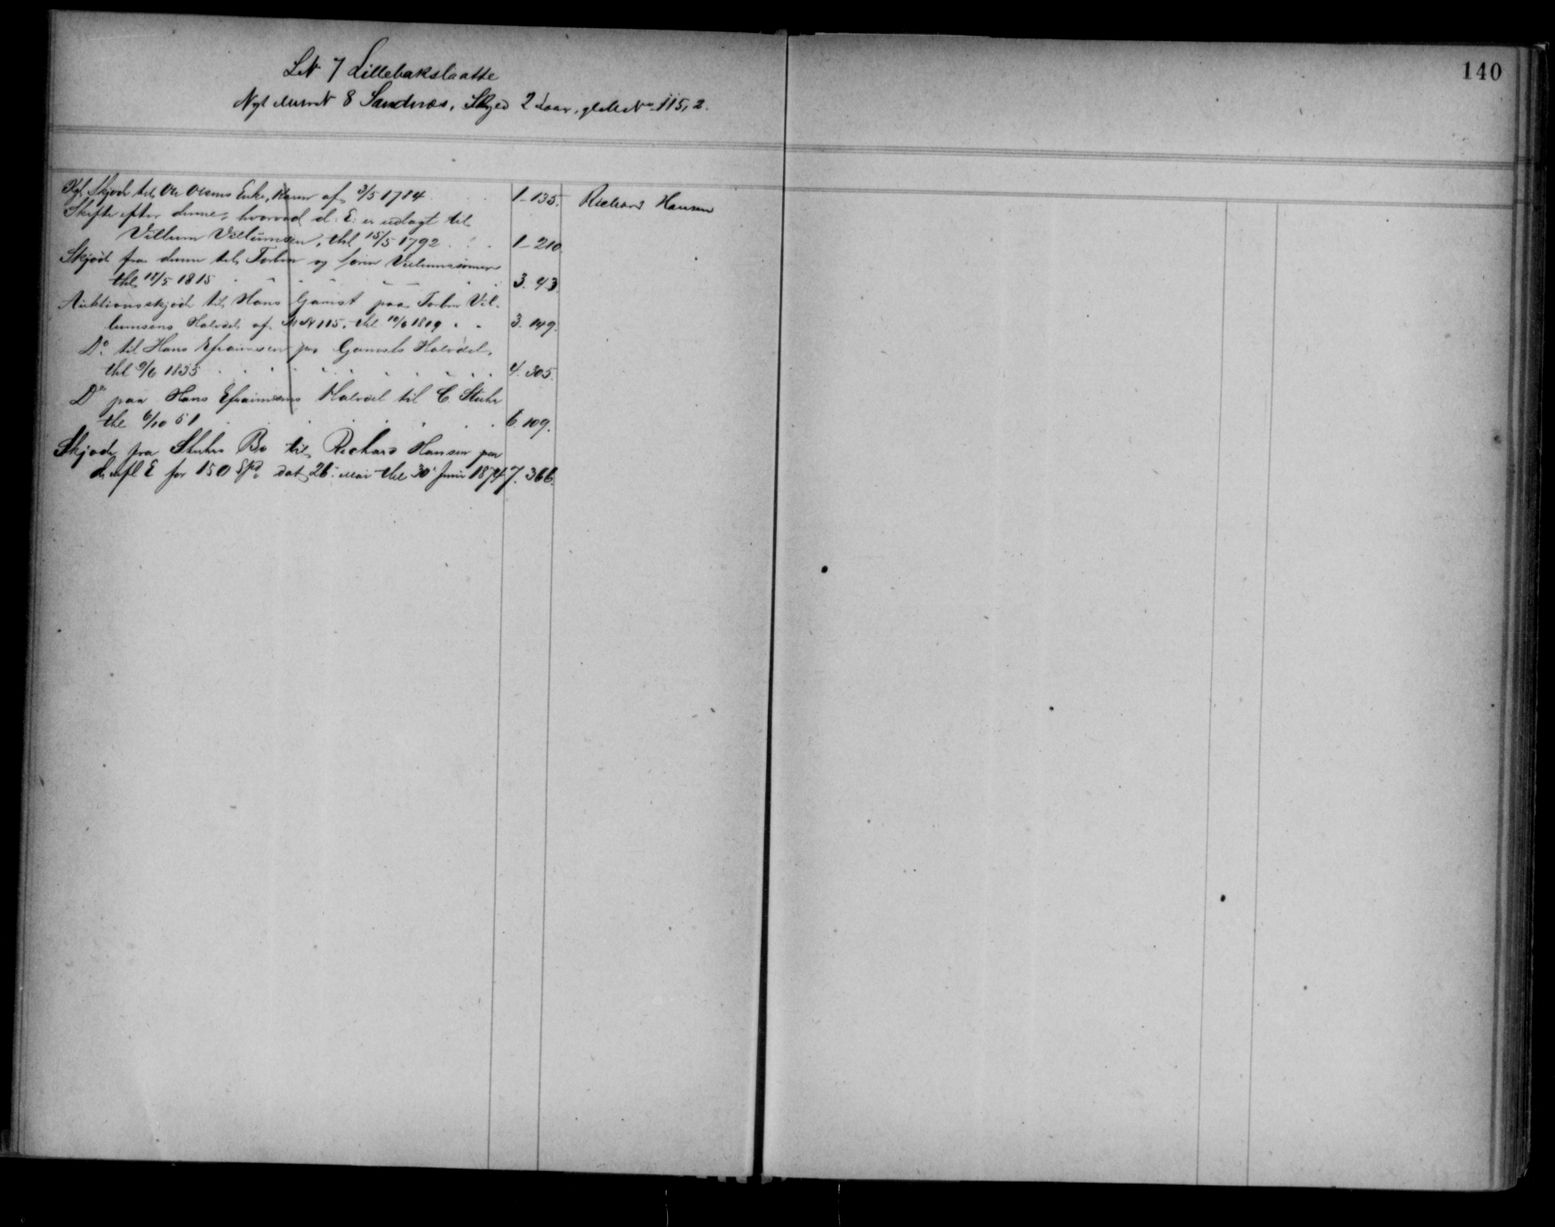 140
LN 7 Lillebakslaatte
Nyt Matr N 8 Sandnæs, Skyld 2 gl M N 115, 2.
Kgl Skjøde til Ole Olsens Enke, Karen af 3/5 1784 1-135. Richard Hansen
Skifte efter denne, hvorved d. E. er udlagt til
Villum Villumsen, thl 15/5 1792 1-210.
Skjøde fra denne til Torber og Søren Villumssønner
thl 12/5 1815 3. 43.
Auktionsskjøde til Hans Gamst paa Torber Vil-
lumsens Halvdel af M N 115, thl 10/6 1819 3. 149.
Do til Hans Efraimsen paa Gamsts Halvdel,
thl 9/6 1835 4. 305.
Do paa Hans Efraimsens Halvdel til C. Stuhr
thl 6/10 51 6. 109.
Skjøde fra Stuhrs Bo til Richard Hansen paa
d. hfl E for 150 Spd. dat 26 Mai thl 30 Juni 1874 7. 366.